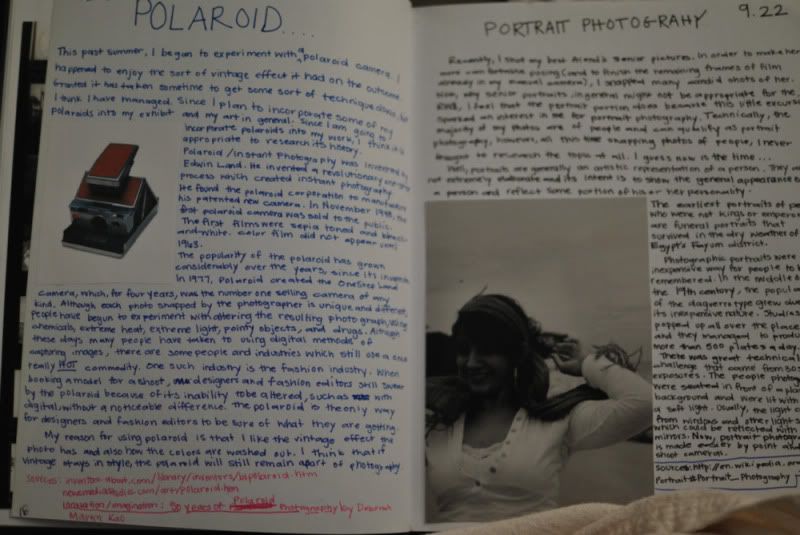 POLAROID....
This past summer, I began to experiment with a polaroid camera. I
happened to enjoy the sort of vintage effect it had on the outcome.
Granted it has taken sometime to get some sort of technique down, but
I think I have managed. Since I plan to incorporate some of my
polaroids into my exhibit and my art in general. Since I am going to
incorporate polaroids into my work, I think it is
appropriate to research its history.
Polaroid/instant Photography was invented by
Edwin Land. He invented a revolutionary one-step
process which created instant photography.
He found the polaroid corporation to manufacture
his patented new camera. In November 1948, the
first polaroid camera was sold to the public.
The first films were sepia toned and black-
and-white. Color film did not appear until
1963.
The popularity of the polaroid has grown
considerably over the years since its invention.
In 1977, Polaroid created the OneStep Land
Camera, which, for four years, was the number one selling camera of any
kind. Although each photo snapped by the photographer is unique and different,
people have begun to experiment with altering the resulting photograph, using
chemicals, extreme heat, extreme light, pointy objects, and drugs. Although
these days many people have taken to using digital methods of
capturing images, there are some people and industries which still use a once
really HOT commodity. One such industry is the fashion industry. When
booking a model for a shoot, designers and fashion editors still swear
by the polaroid because of its inability to be altered, such as with
digital, without a noticeable difference. The polaroid is the only way
for designers and fashion editors to be sure of what they are getting.
My reason for using polaroid is that I like the vintage effect the
photo has and also how the colors are washed out. I think that if
vintage stays in style, the polaroid will still remain apart of photography.
Sources: inventors.about.com/library/inventors/blpolaroid.htm
newmediastudies.com/art/polaroid.htm
Innovation/imagination: 50 years of Polaroid Photography by Deborah
Martin Kao
18
9.22
PORTRAIT PHOTOGRAHY
Recently, I shot my best friend's senior pictures. In order to make her
more comfortable posing (and to finish the remaining frames of film
already in my manual camera), I snapped many candid shots of her.
Now, why senior portraits in general might not be appropriate for the
I feel that the portrait portion does because this little excursion
sparked an interest in me for portrait photography. Technically, the
majority of my photos are of people and can qualify as portrait
photography, however, all this time snapping photos of people, I never
thought to research the topic at all. I guess now is the time...
Well, portraits are generally an artistic representation of a person. They are
not extremely elaborate and its intent is to show the general appearance of
a person and reflect some portion of his or her personality.
The earliest portraits of people
who were not kings or emperors
are funeral portraits that
survived in the dry weather of
Egypt's Fayum district.
Photographic portraits were
inexpensive way for people to be
remembered. In the middle of
the 19th century, the popularity
of the daguerrotype grew due to
its inexpensive nature. Studios
popped up all over the place
and they managed to produce
more than 500 plates a day.
There was great technical
challenge that came from 30 second
exposures. The people photographed
were seated in front of a plain
background and were lit with
a soft light. Usually, the light came
from windows and other light sources
which could be reflected with
mirrors. Now, portrait photography
is made easier by point and
shoot cameras.
Sources: http://en.wikipedia.org
Portrait#Portrait_Photography